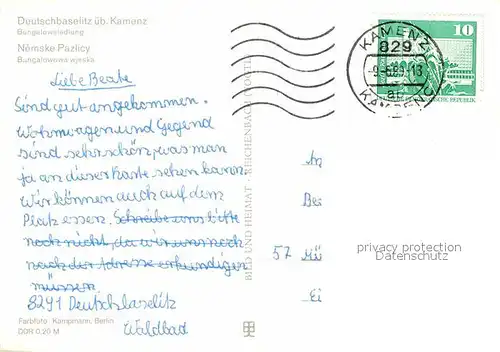 Deutschbaselitz üb. Kamenz
Bungalowsiedlung
Němske Pazlicy
Bungalowowa wjeska
Liebe Beate
Sind gut angekommen.
Wohnwagen und Gegend
sind sehr schön, was man
ja an dieser Karte sehen kann.
Wir können auch auf dem
Platz essen. Schreibe uns bitte
noch nicht, da wir uns noch
nach der Adresse erkundigen
müssen.
8291 Deutschbaselitz
Waldbad
Farbfoto: Kampmann, Berlin
DDR 0,20 M
BILD UND HEIMAT REICHENBACH
KAMENZ
829
KAMJENC
10
An
Bei
57 Mü
Ei
privacy protection
Datenschutz